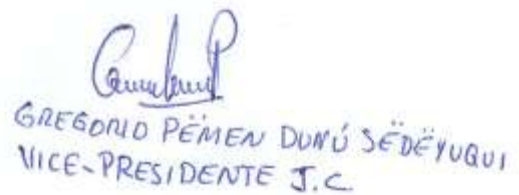 GREGORIO PËMEN DUNÚ SËDËYUQUI
VICE-PRESIDENTE J.C.